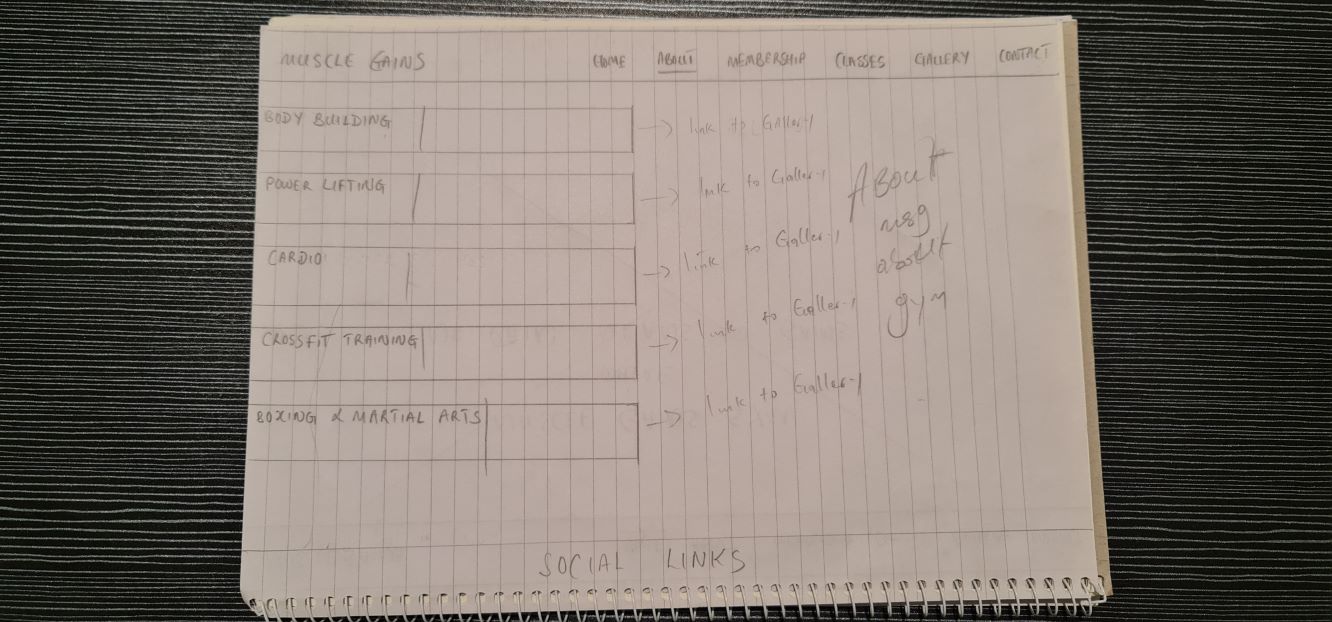 MUSCLE GAINS HOME ABOUT MEMBERSHIP CLASSES GALLERY CONTACT
BODY BUILDING
link to Galler-y
POWER LIFTING
link to Galler-y
CARDIO
link to Galler-y
CROSSFIT TRAINING
link to Galler-y
BOXING & MARTIAL ARTS
link to Galler-y
About
msg
about
gym
SOCIAL LINKS